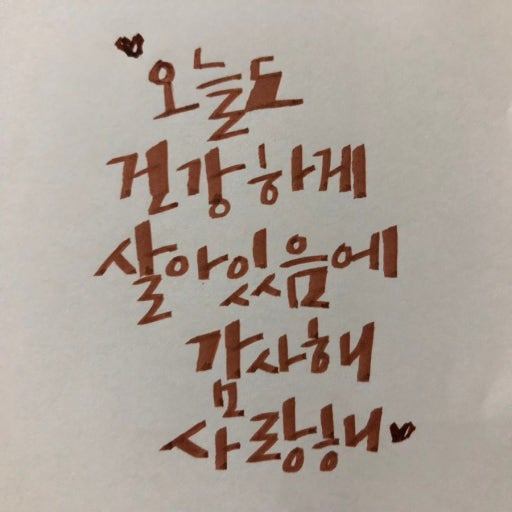 오늘도
건강하게
살아있음에
감사해
사랑해